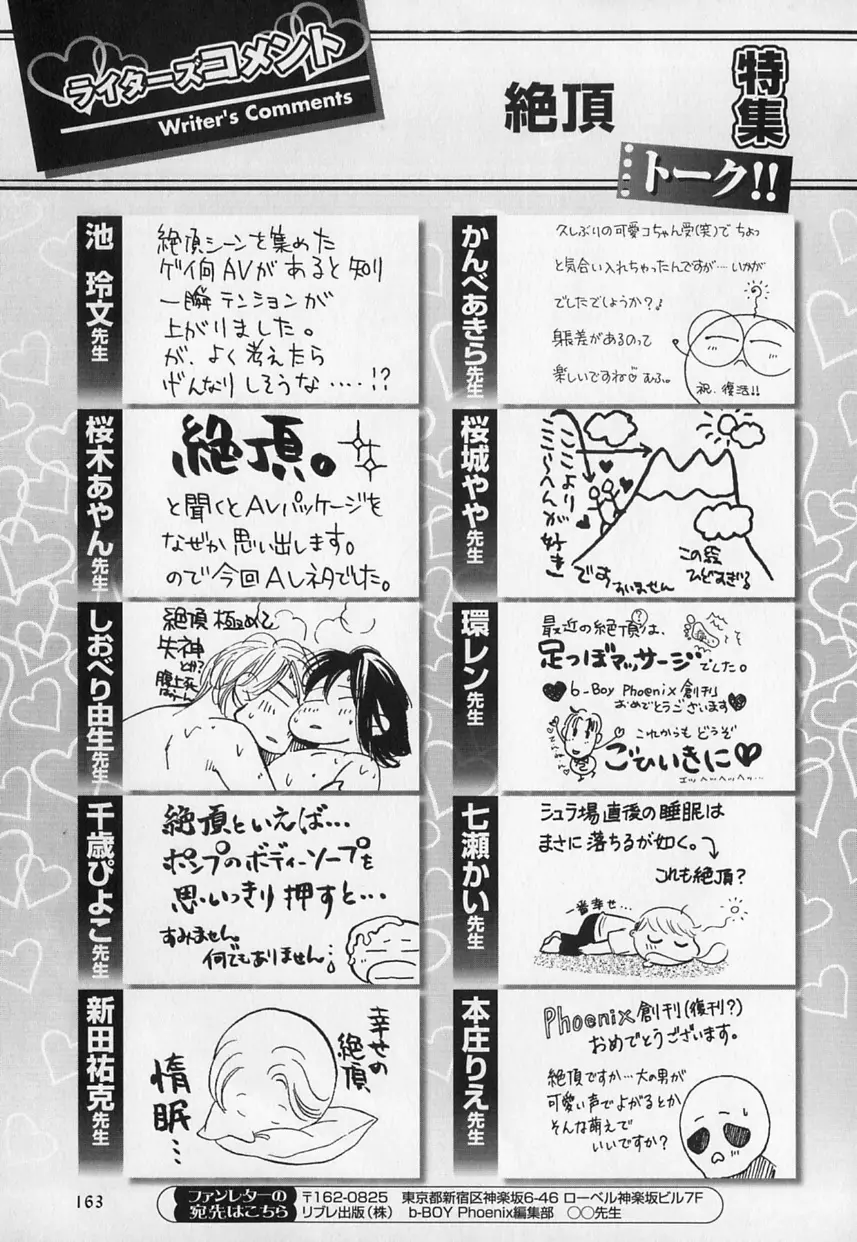 ライターズコメント
Writer's Comments
特集
絶頂
トーク!!
かんべあきら先生
久しぶりの可愛コちゃん受(笑)で ちょっ
と気合い入れちゃったんですが…いかが
でしたでしょうか?♪
身長差があるのって
楽しいですね♡ むふ。
祝・復活!!
池 玲文先生
絶頂シーンを集めた
ゲイ向AVがあると知り
一瞬テンションが
上がりました。
が、よく考えたら
げんなりしそうな……!?
桜城やや先生
ここより
ここらへんが
好き
です
すいません
この絵
ひどすぎる
桜木あやん先生
絶頂。
と聞くとAVパッケージを
なぜか思い出します。
ので今回AVネタでした。
環レン先生
最近の絶頂は、
?
足つぼマッサージでした。
痛い
♥b-Boy Phoenix創刊
おめでとうございます♥
これからもどうぞ
ごひいきに♥
エッヘッヘッヘッ…
しおべり由生先生
絶頂極めて
失神
とか?
腹上死
七瀬かい先生
シュラ場直後の睡眠は
まさに落ちるが如く。
これも絶頂?
一番幸せ…
千歳ぴよこ先生
絶頂といえば…
ポンプのボディーソープを
思いっきり押すと…
すみません。
何でもありません…;
本庄りえ先生
Phoenix創刊(復刊?)
おめでとうございます。
絶頂ですか…大の男が
可愛い声でよがるとか
そんな萌えで
いいですか?
新田祐克先生
幸せの
絶頂
惰眠…
163
ファンレターの
宛先はこちら
〒162-0825 東京都新宿区神楽坂6-46 ローベル神楽坂ビル7F
リブレ出版(株) b-BOY Phoenix編集部 ○○先生